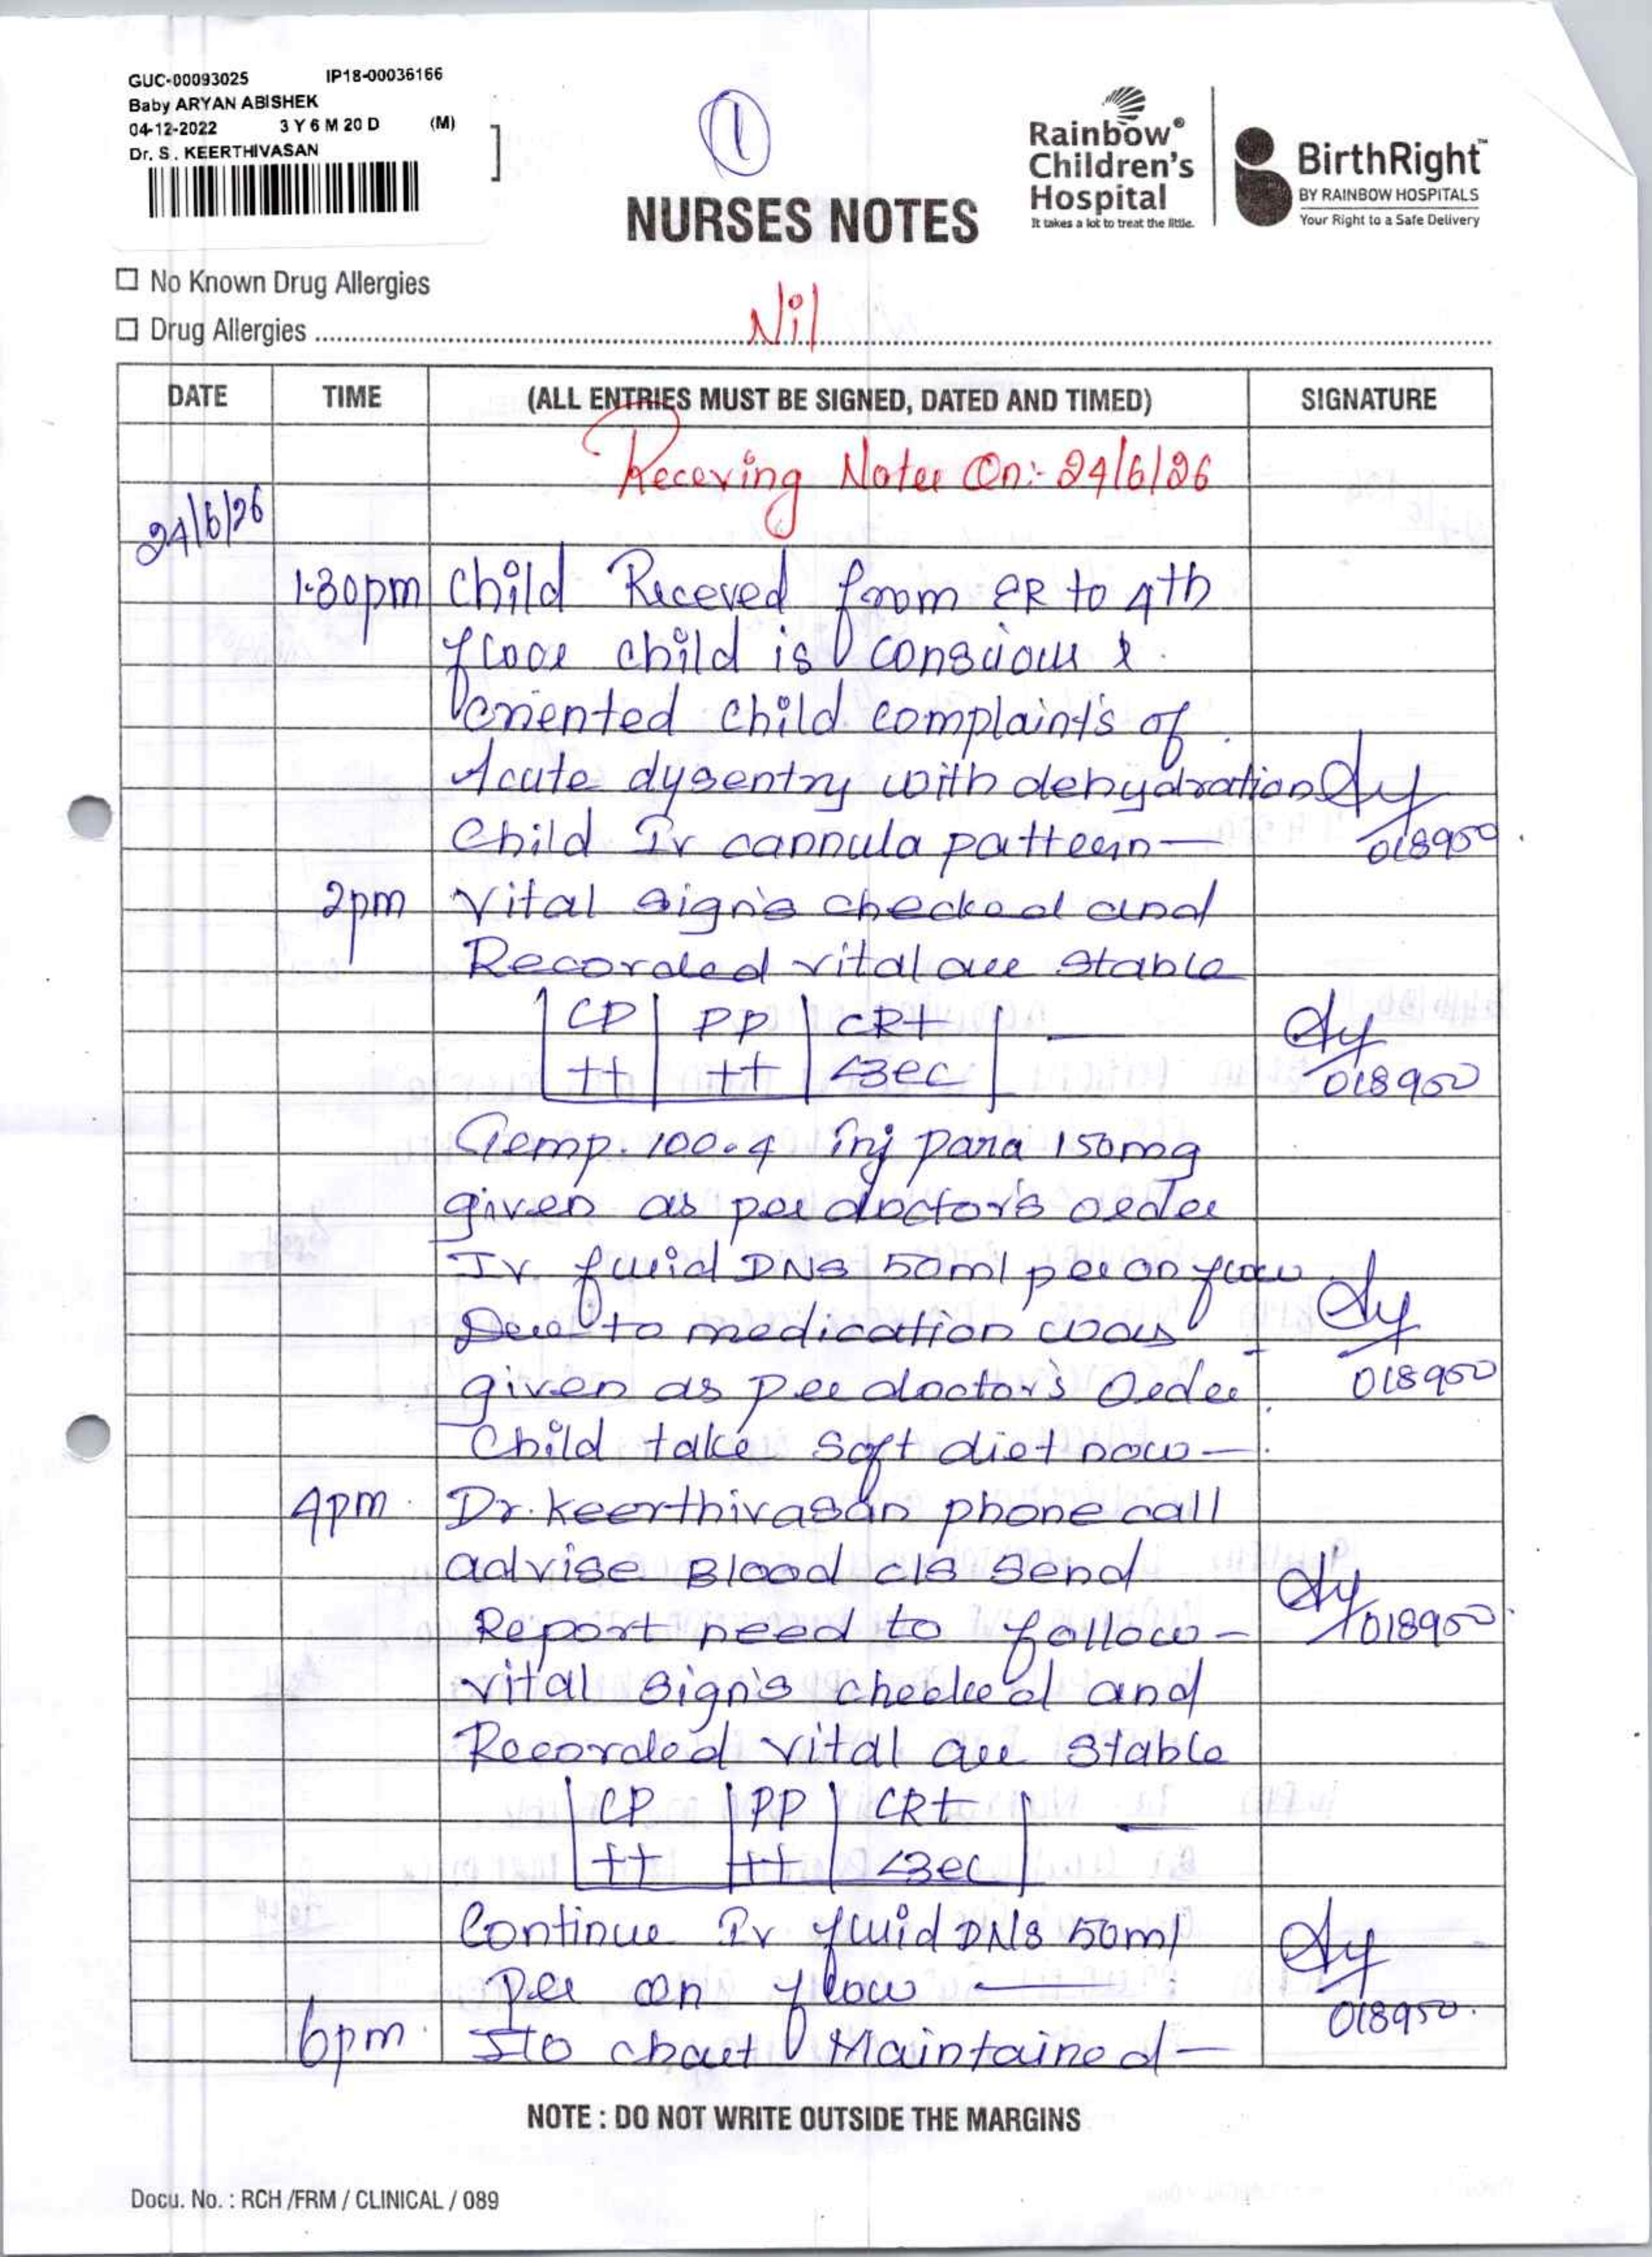 GUC-00093025 IP18-00036166
Baby ARYAN ABISHEK
04-12-2022 3 Y 6 M 20 D (M)
Dr. S. KEERTHIVASAN
1
Rainbow®
Children's
Hospital
It takes a lot to treat the little.
BirthRight™
BY RAINBOW HOSPITALS
Your Right to a Safe Delivery
NURSES NOTES
No Known Drug Allergies
Drug Allergies Nil
DATE TIME (ALL ENTRIES MUST BE SIGNED, DATED AND TIMED) SIGNATURE
Receving Notes On:- 24/6/26
24/6/26
1.30pm Child Receved from ER to 4th
floor child is conscious &
oriented child complaint's of
Acute dysentry with dehydration
Child Iv cannula patteein 018950
2pm Vital sign's checked and
Recorded vital are stable
CP PP CRT
++ ++ <3sec 018950
Temp. 100.4 inj para 150mg
given as per doctor's order
Iv fluid DNS 50ml per on flow
Due to medication was
given as per doctor's Order 018950
Child take soft diet now
4pm Dr. Keerthivasan phone call
advise Blood c/s send
Report need to follow 018950
vital sign's checked and
Recorded vital are stable
CP PP CRT
++ ++ <3sec
Continue Iv fluid DNS 50ml
per on flow 018950
6pm I/O chart Maintained
NOTE : DO NOT WRITE OUTSIDE THE MARGINS
Docu. No. : RCH /FRM / CLINICAL / 089